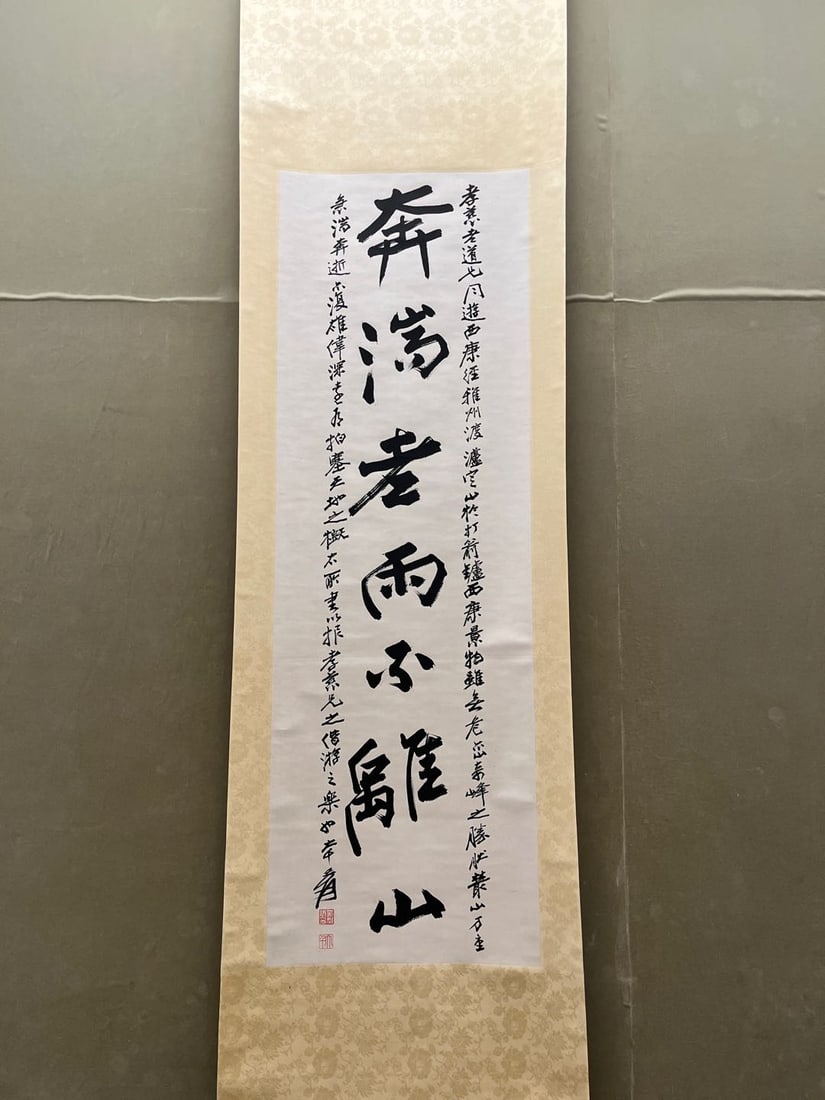 孝慈老道兄同遊西康經雅州渡瀘定止於打箭鑪西康景物雖無秀峰之勝然叢山万重
奔湍老雨不離山
急湍奔逝亦復雄偉深遠有拍塞天地之概書以報孝慈兄之偕游之樂也爰